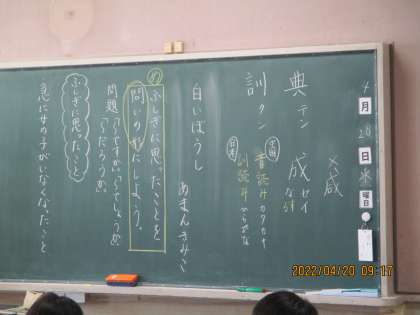 4月20日水曜日
×咸
典 テン 成 セイ な(す)
訓 クン
中国 音読み カタカナ
日本 訓読み ひらがな
白いぼうし
あまんきみこ
め
ふしぎに思ったことを
問いの形にしよう。
問題
ふしぎに思ったこと
急に女の子がいなくなったこと
2022/04/20 09:17